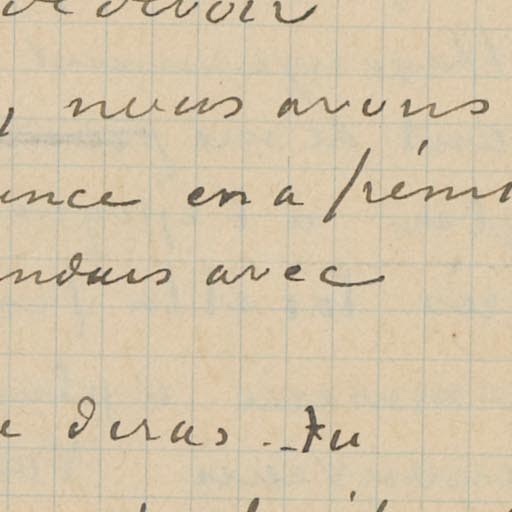 devoir
, nous avons
ence en a frémi
ndais avec
e diras. - Tu